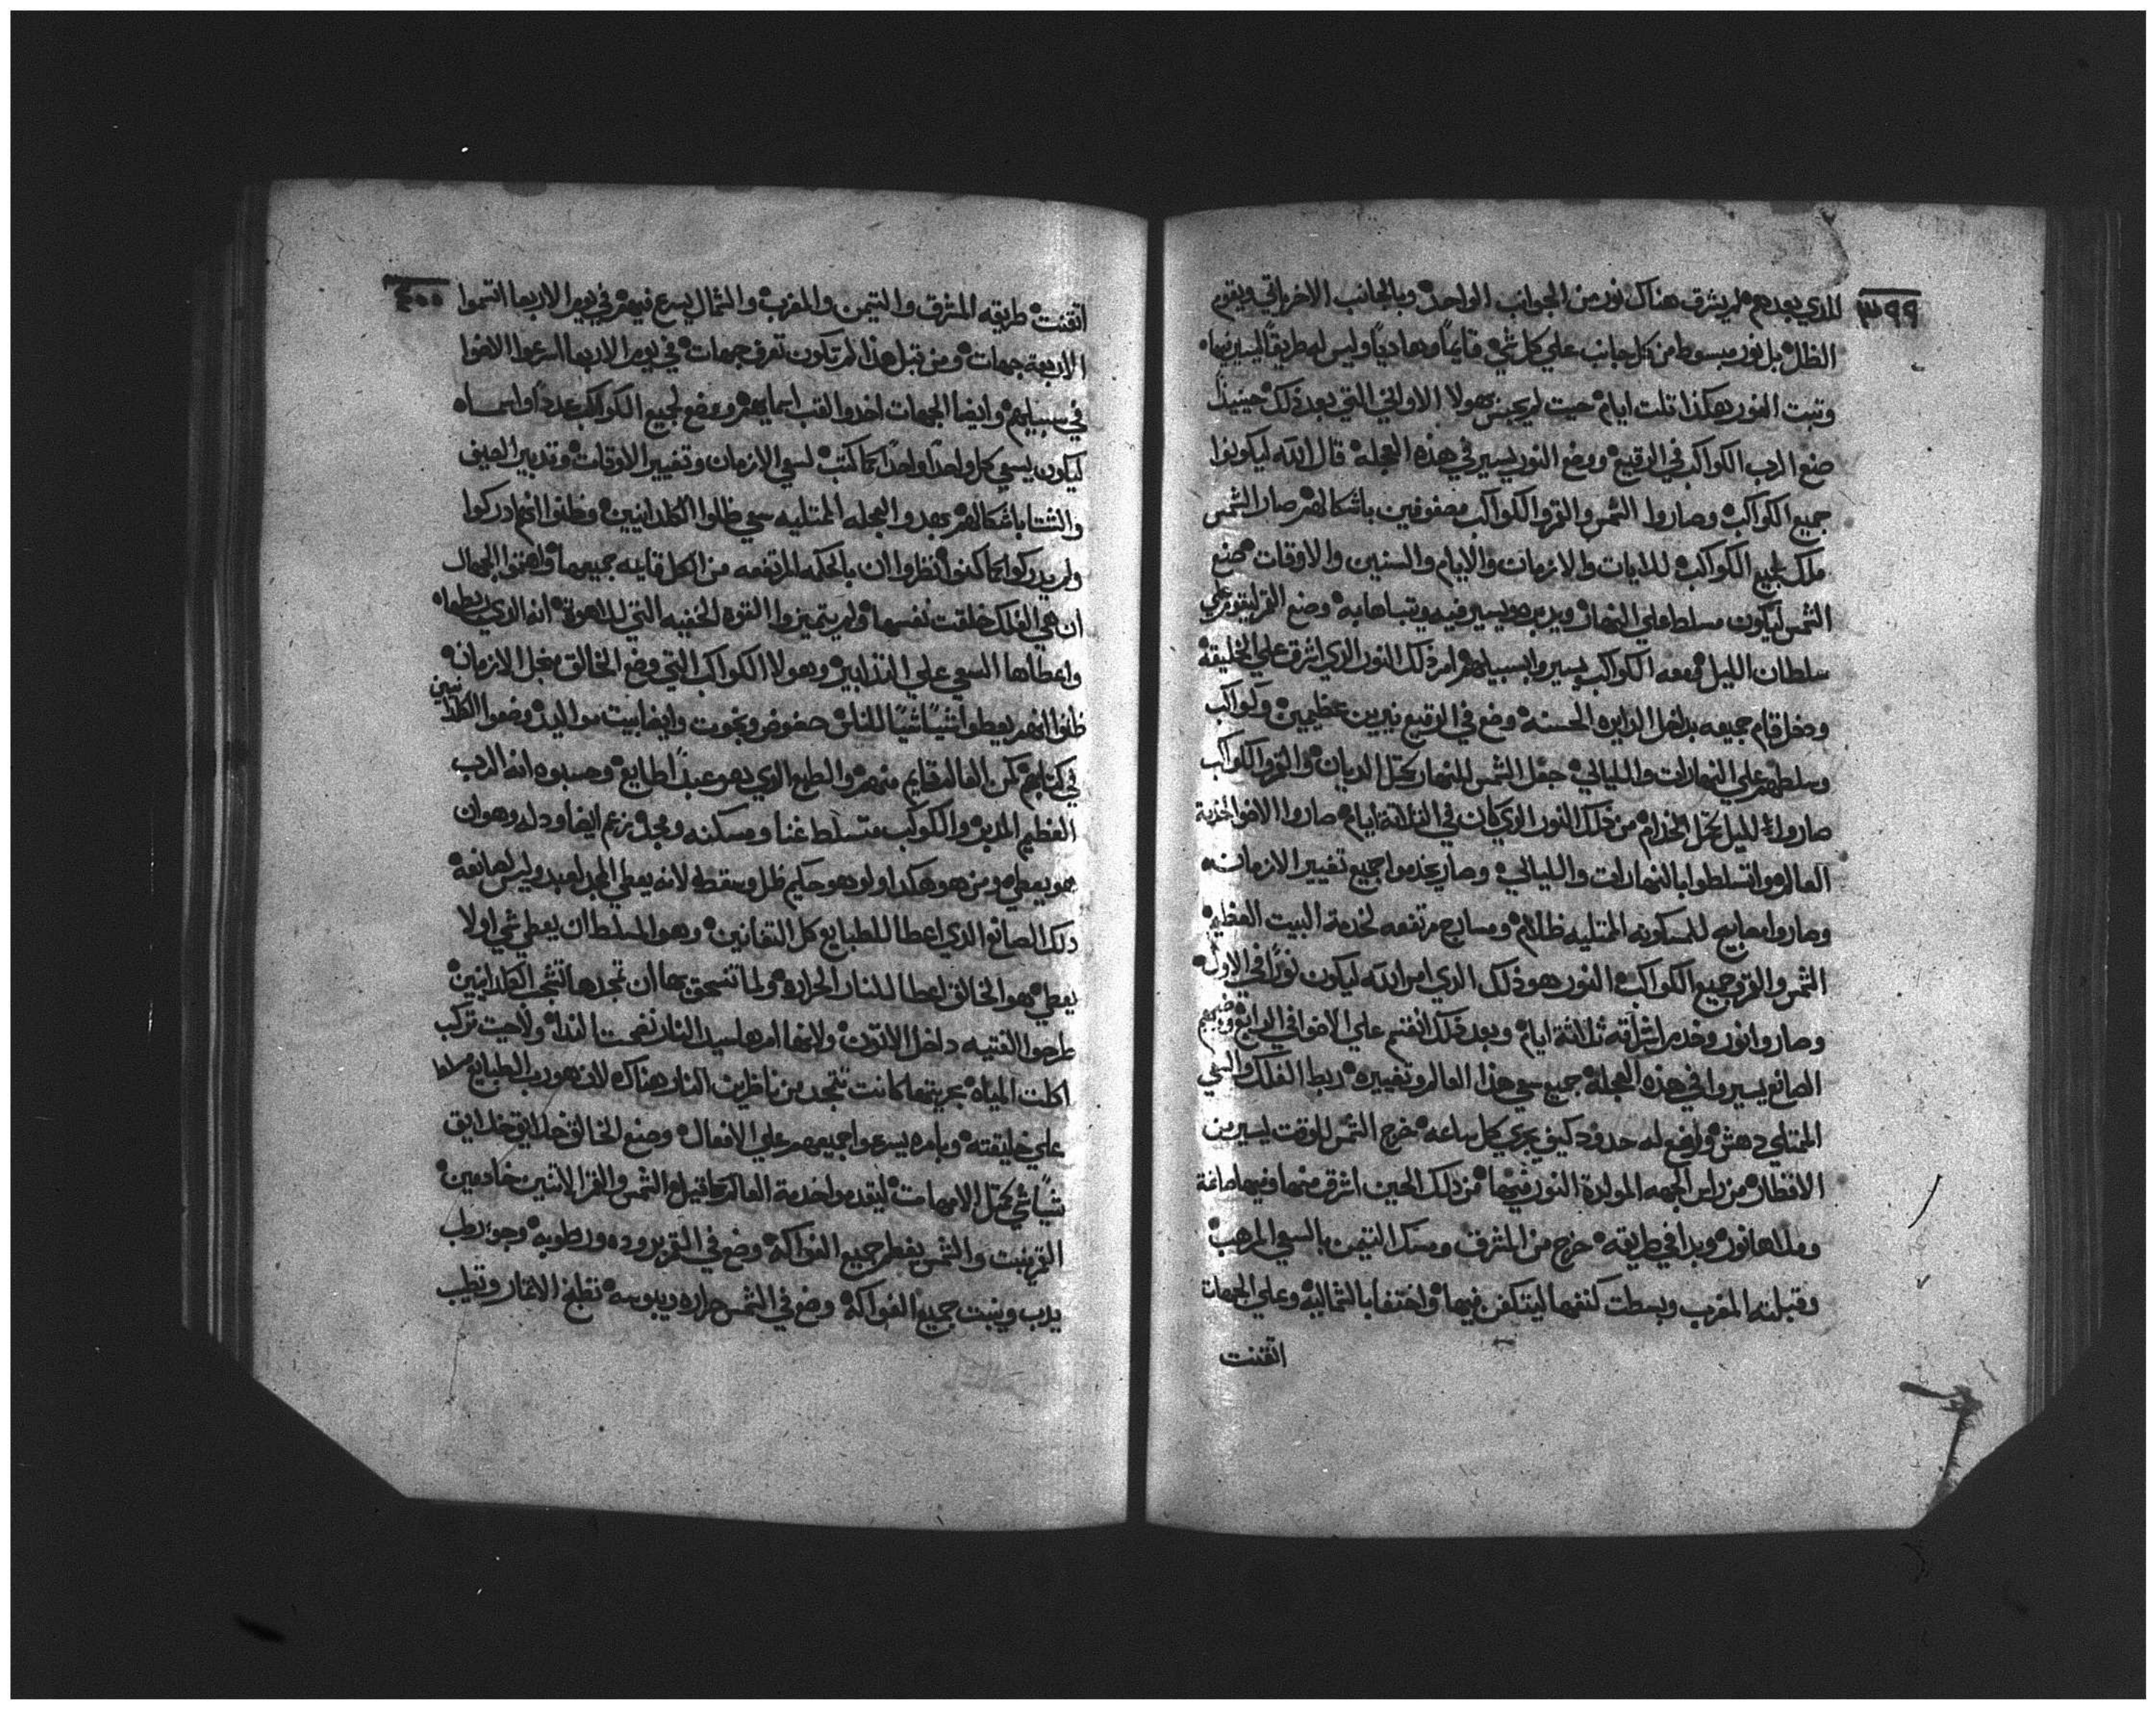 ٣٩٩
الذي بعدهم لم يشرق هناك نور من الجوانب الواحدة وبالجانب الاخر باقي ويقوم
الظل بل نور مبسوط من كل جانب علي كل شي قايمًا وهاديًا وليس له طريقًا ليسير فيها
وتبت النور هكذا تلت ايام حيت لم يحبس بهولا الاواني التي بعد ذلك حينيذًا
صنع الرب الكواكب في الرقيع ووضع النور يسير في هذه العجله قال الله ليكونوا
جميع الكواكب وصاروا الشمس والقمر والكواكب مصفوفين باشكالهم صار الشمس
ملك لجميع الكواكب للايات والازمات والايام والسنين والاوقات صنع
الشمس ليكون مسلط علي النهار ويدبره ويسير فيه ويتباها به وضع القمر ليقوم علي
سلطان الليل ومعه الكواكب يسيروا بسبيلهم امر ذلك النور الذي اشرق علي الخليقة
ودخل قام جميعه بداخل الدايره الحسنه وضع في الرقيع نيرين عظيمين وكواكب
وسلطهم علي النهارات والليالي جعل الشمس للنهار كمتل الديان والقمر والكواكب
صاروا لليل كمتل الخدام من ذلك النور الذي كان في التلاتة ايام صاروا الاضوا لخدمة
العالم واتسلطوا بالنهارات والليالي وصار يخدموا جميع تغيير الازمان
وصاروا مصابيح للمسكونه الممتليه ظلام ومسارج مرتفعه لخدمة البيت العظيم
الشمس والقمر وجميع الكواكب النور هو ذلك الذي امر الله ليكون نورًا في الاول
وصاروا نور وخدم اشراقه ثلاثة ايام وبعد ذلك انقسم علي الاضوا في الرابع وضعهم
الصانع يسيروا في هذه العجلة جميع سعي هذا العالم وتغييره ربط الفلك والسعي
الممتلي دهش واوضع له حدود كيف يجري كل ساعه خرج الشمس للوقت ليسير من
الاقطار من راس الجهه المولدة النور فيها من ذلك الحين اشرق منها فيها صاغة
وملاها نور وبدا في طريقه خرج من المشرق ومسك التيمن بالسعي المرهب
وقبلته المغرب وبسطت كنفها ليتكفن فيها واختفا بالشمالية وعلي الجهات
اتقنت
٤٠٠
اتقنت طريقه المشرق والتيمن والمغرب والشمال يسرع فيهم في يوم الاربعا اتسموا
الاربعة جهات ومن قبل هذا لم تكون تعرف جهات في يوم الاربعا اسرعوا الاضوا
في سبيلهم وايضا الجهات اخدوا القب اسمايهم ووضع لجميع الكواكب عددًا واسماه
ليكون يسمي كل واحدًا واحدًا كما كتب لسعي الازمان وتغيير الاوقات وتدبير الصيف
والشتا باشكالهم يعدوا العجله الممتليه سعي ضلوا الكلدانيين وظنوا انهم ادركوا
ولم يدركوا كما كنوا نظروا ان بالحكمه المرتفعه من الكل قايمه جميعها واهتموا الجهال
ان هي الفلك خلقت نفسها ولم يتميزوا القوة الخفيه التي للاهوة انه الذي ربطها
واعطاها السعي علي التدابير وهولا الكواكب التي وضع الخالق من اجل الازمان
ظنوا انهم يعطوا شيًا شيًا للناس حضوض وبخوت وايضا بيت مواليد وضعوا الكلدانيين
في كتابهم كون العالم قايم منهم والطبع الذي هو عبدًا لطايع وحسبوه انه الرب
العظيم المدبر والكوكب متسلط غنا ومسكنه ومجد بزعم ايضا ودله وهوان
هو يعطي ومن هو هكذا ولو هو حكيم ظل وسقط لانه يعطي المجد لعبد وليس لصانعه
ذلك الصانع الذي اعطا للطبايع كل التقانين وهو المسلط ان يعطي شي او لا
يعطي هو الخالق اعطا للنار الحراره ولما تسحق بها ان تمجدها تشجى الكلدانيين
طرحوا الفتيه داخل الاتون ولانها امرها سيد النار نضحت الندا ولا حيت تركب
اكلت المياه بجريتها كانت تتجد من ناظرين النار هناك لان هو رب الطبايع
علي خليقته وبامره يسرعوا جميعهم علي الافعال وصنع الخالق خلايق خلايق
شيًا شي كمتل الامهات ليتقدموا خدمة العالم كما قيل الشمس والقمر الاتنين خادمين
القمر ينبت والشمس يفطر جميع الفواكه وضع في القمر بروده ورطوبه وجو رطب
يرب وينبت جميع الفواكه وضع في الشمس حراره ويبوسه تطبخ الاثمار وتطيب